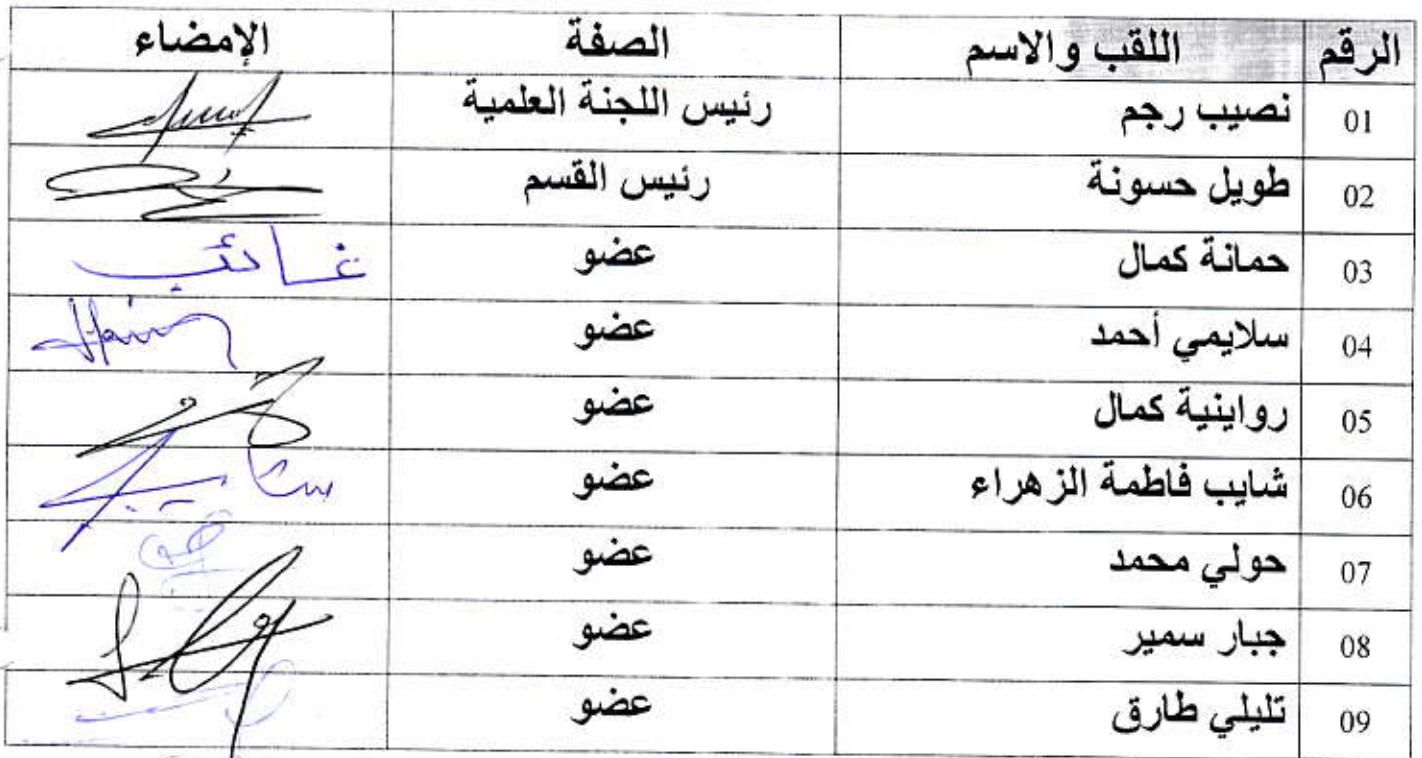 الرقم اللقب والاسم الصفة الإمضاء
01 نصيب رجم رئيس اللجنة العلمية
02 طويل حسونة رئيس القسم
03 حمانة كمال عضو غائب
04 سلايمي أحمد عضو
05 رواينية كمال عضو
06 شايب فاطمة الزهراء عضو
07 حولي محمد عضو
08 جبار سمير عضو
09 تليلي طارق عضو